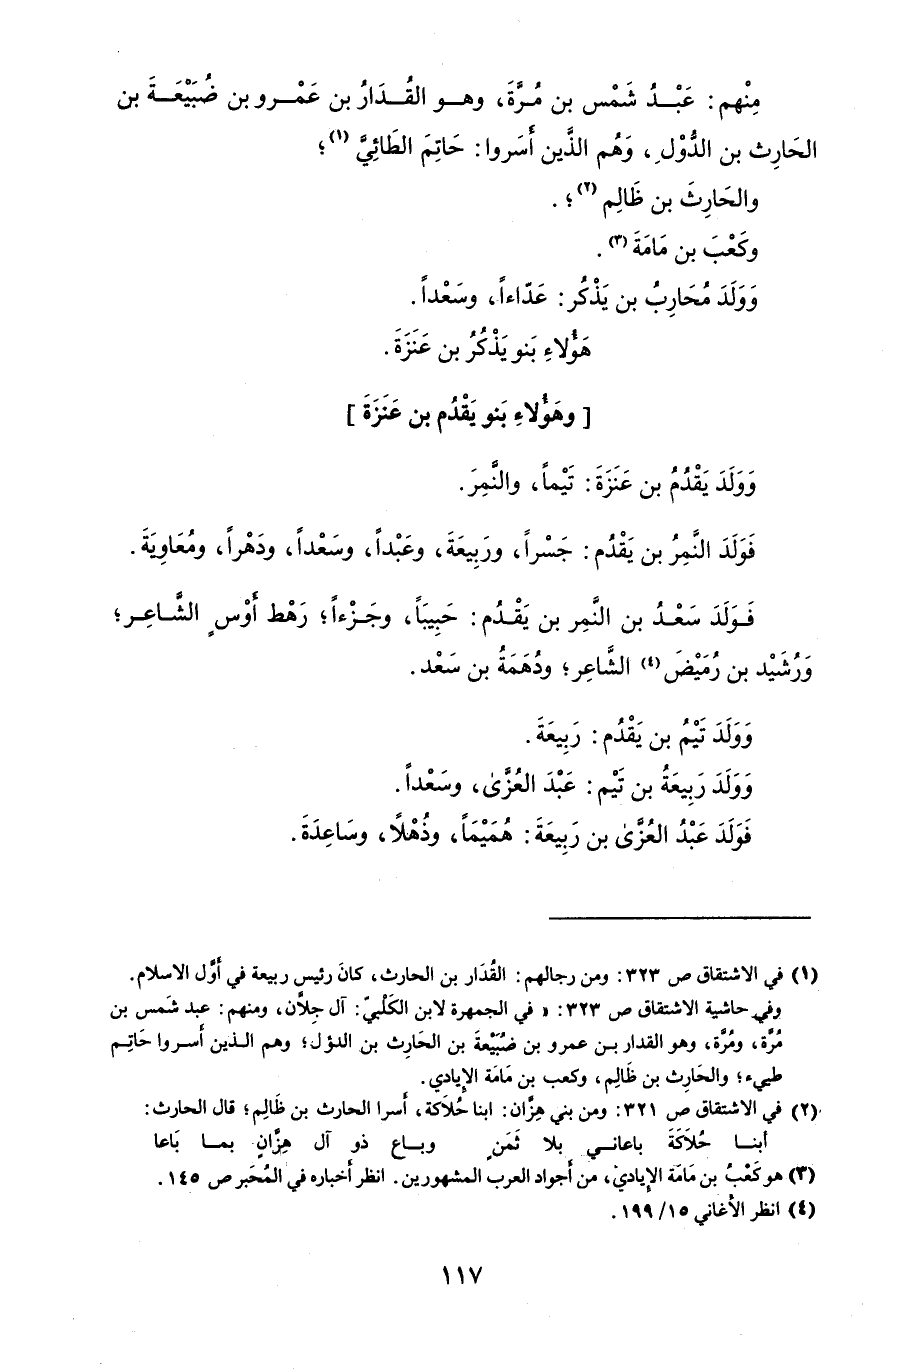 مِنْهم: عَبْـدُ شَمْس بن مُرَّةَ، وهـو القُـدَارُ بن عَمْـرو بن ضُبَيْعَـةَ بن
الحَارِث بن الدُّوْلِ، وَهُم الذَّين أَسَروا: حَاتِمَ الطَائِيَّ (١)؛
والحَارِثَ بن ظَالِم (٢)؛ .
وكَعْبَ بن مَامَةَ (٣) .
وَوَلَدَ مُحَارِبُ بن يَذْكُر: عَدّاءاً، وسَعْداً.
هَؤُلاءِ بَنو يَذْكُرُ بن عَنَزَةَ.
[ وهَؤُلاءِ بَنو يَقْدُم بن عَنَزَةَ ]
وَوَلَدَ يَقْدُمُ بن عَنَزَةَ: تَيْماً، والنَّمِرَ.
فَوَلَدَ النَّمِرُ بن يَقْدُم: جَسْراً، ورَبِيعَةَ، وعَبْداً، وسَعْداً، ودَهْراً، ومُعَاوِيَةَ.
فَـوَلَدَ سَعْـدُ بن النَّمِر بن يَقْـدُم: حَبِيبَاً، وجَـزْءاً؛ رَهْط أَوْسٍ الشَّـاعِـر؛
وَرُشَيْد بن رُمَيْضَ (٤) الشَّاعِر؛ ودُهَمَةُ بن سَعْد.
وَوَلَدَ تَيْمُ بن يَقْدُم: رَبِيعَةَ.
وَوَلَدَ رَبِيعَةُ بن تَيْم: عَبْدَ العُزَّىٰ، وسَعْداً.
فَوَلَدَ عَبْدُ العُزَّىٰ بن رَبِيعَةَ: هُمَيْمَاً، وذُهْلًا، وسَاعِدَةَ.
(١) في الاشتقاق ص ٣٢٣: ومن رجالهم: القُدَار بن الحارث، كانَ رئيس ربيعة في أوَّل الاسلام.
وفي حاشية الاشتقاق ص ٣٢٣: « في الجمهرة لابن الكَلْبيّ: آل جِلَّان، ومنهم: عبد شَمس بن
مُرَّة، ومُرَّة، وهو القدار بـن عمرو بن ضُبَيْعةَ بن الحَارِث بن الدؤل؛ وهم الـذين أسـروا حَاتِـم
طيىء؛ والحَارِث بن ظَالِم، وكعب بن مَامَة الإيادي.
(٢) في الاشتقاق ص ٣٢١: ومن بني هِزَّان: ابنا حُلَاكَة، أسرا الحارث بن ظَالِم؛ قال الحارث:
أبنـا حُلَاكَةَ باعاني بلا ثَمَنٍ وبـاع ذو آل هِزَّانٍ بمـا بَاعا
(٣) هو كَعْبُ بن مَامَة الإيادي، من أجواد العرب المشهورين. انظر أخباره في المُحَبر ص ١٤٥.
(٤) انظر الأغاني ١٥/ ١٩٩.
١١٧